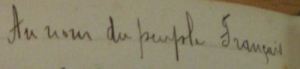 Au nom du peuple Français